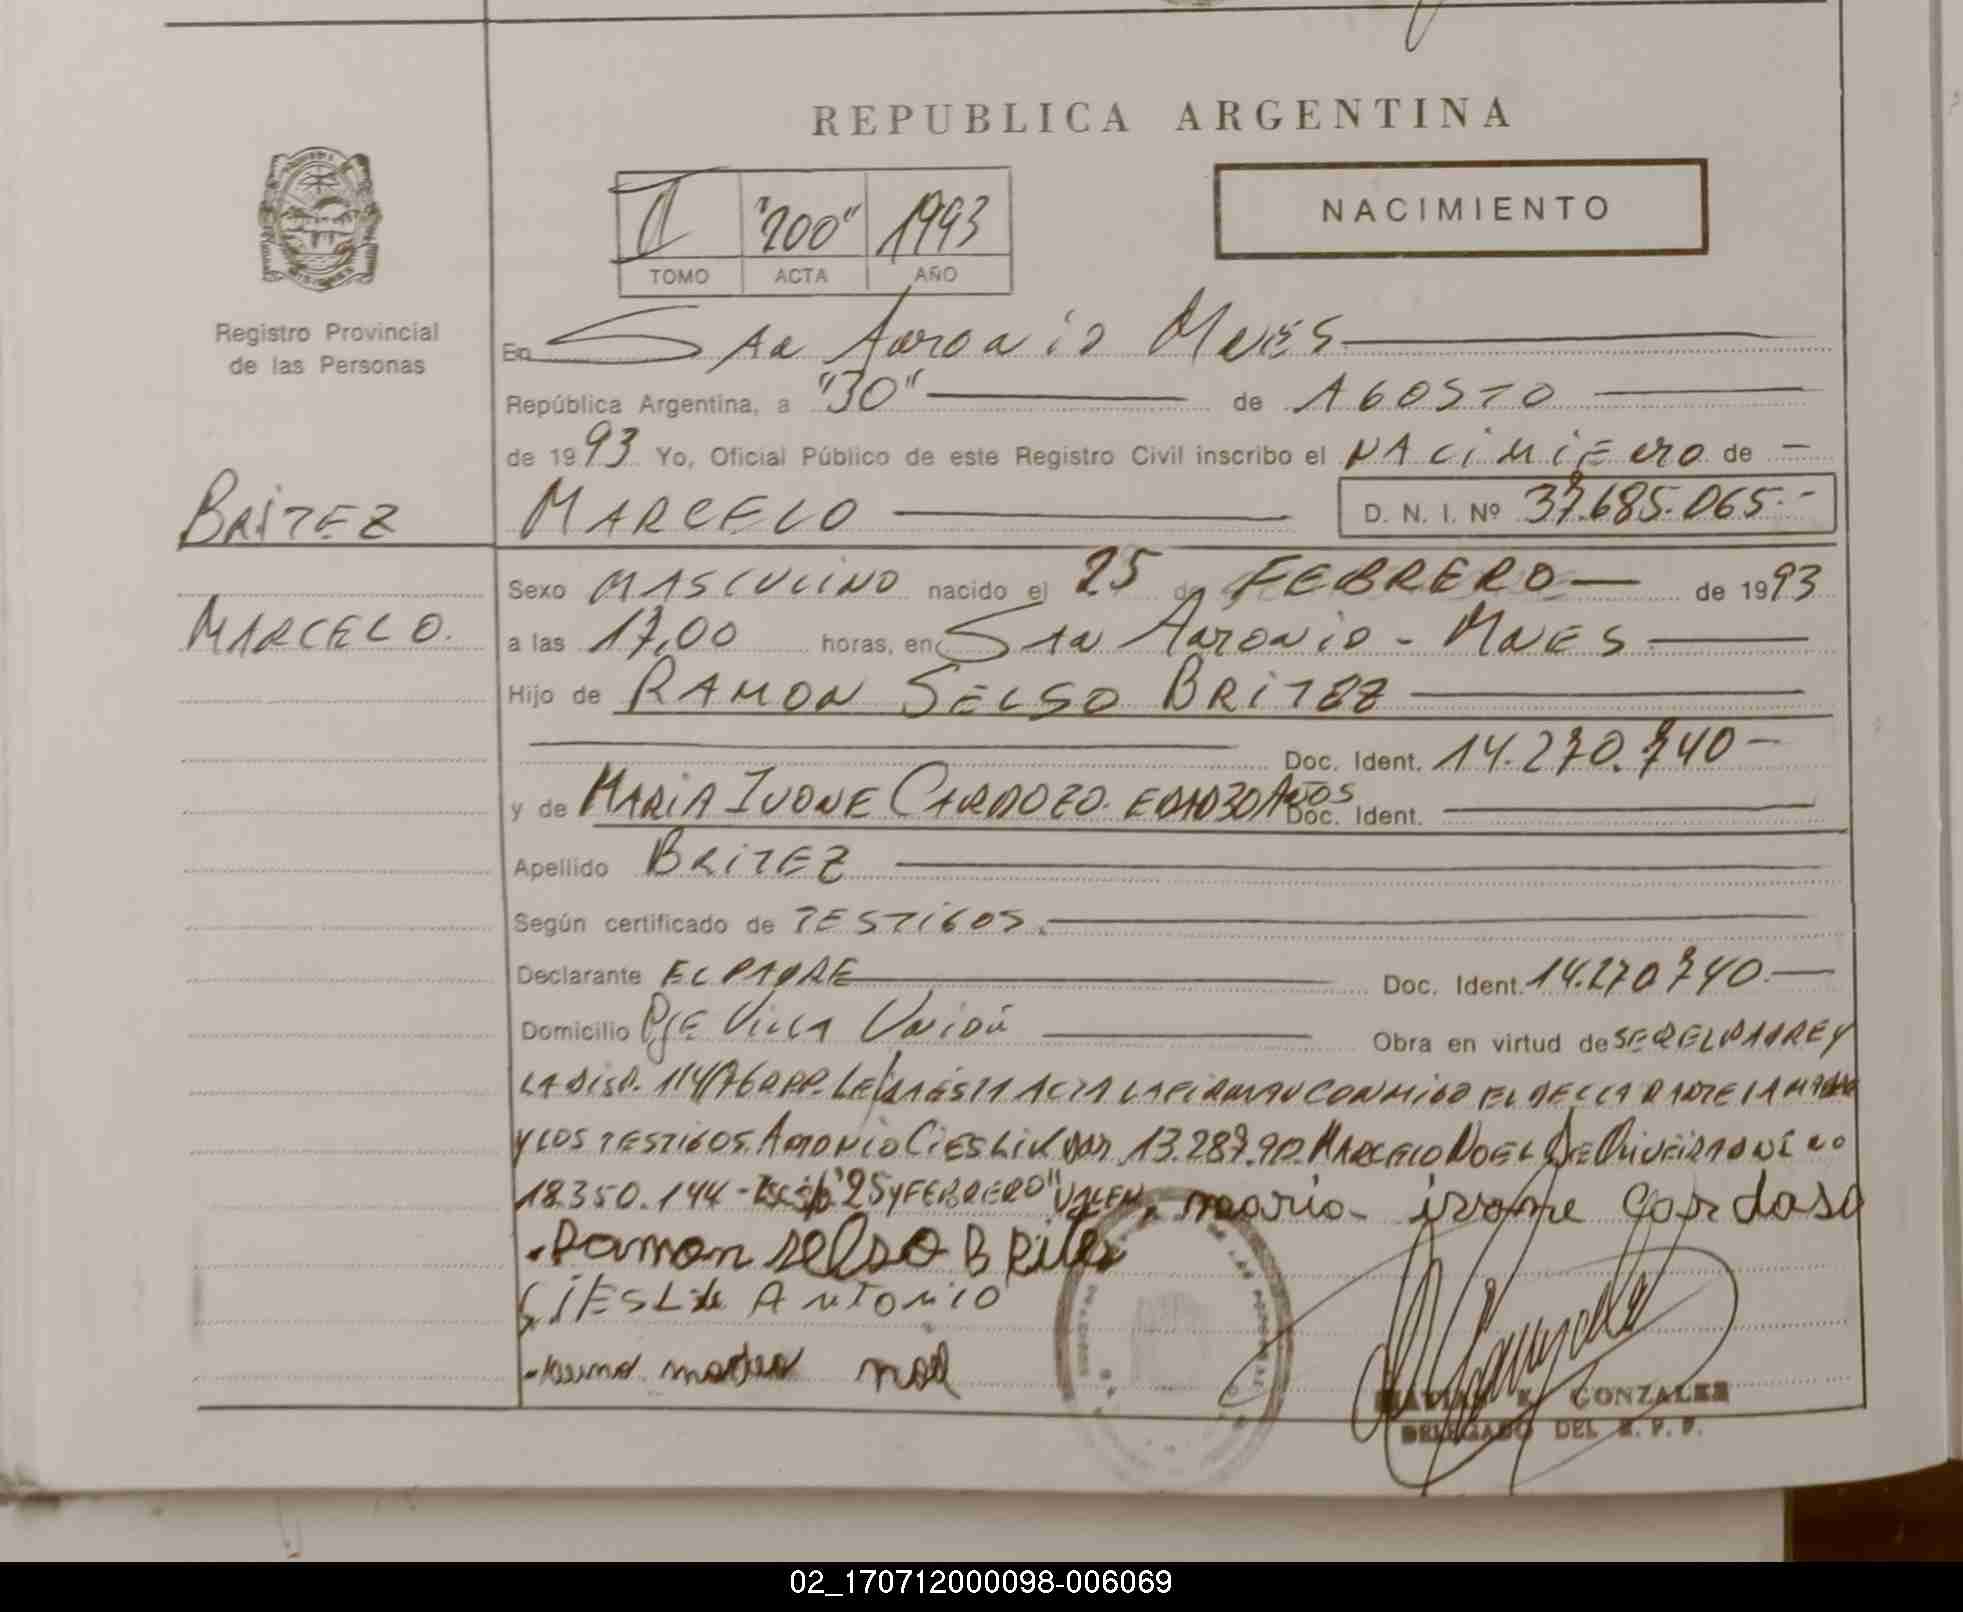 REPUBLICA ARGENTINA
II "200" 1993
TOMO ACTA AÑO
NACIMIENTO
Registro Provincial
de las Personas
En San Antonio Mnes
República Argentina, a "30" de AGOSTO
de 1993 Yo, Oficial Público de este Registro Civil inscribo el NACIMIENTO de
BRITEZ
MARCELO D. N. I. Nº 37.685.065.-
MARCELO.
Sexo MASCULINO nacido el 25 de FEBRERO de 1993
a las 17,00 horas, en SAN ANTONIO - MNES
Hijo de RAMON SELSO BRITEZ
Doc. Ident. 14.270.740-
y de MARIA IVONE CARDOZO. EDAD 30 AÑOS Doc. Ident.
Apellido BRITEZ
Según certificado de TESTIGOS.
Declarante EL PADRE Doc. Ident. 14.270740.-
Domicilio Pje Villa Unión Obra en virtud de SER EL PADRE Y
LA DISP. 114/76 RPP. LEIDA ESTA ACTA LA FIRMAN CONMIGO EL DECLARANTE LA MADRE
Y LOS TESTIGOS. ANTONIO CIESLIK 13.287.90. MARCELO NOEL DE OLIVEIRA
18350.144 - "25 y FEBRERO" VALEN. maria ivone Cardoso
Ramon selso Britez
CIESLIK ANTONIO
GONZALEZ
DELEGADO DEL R. P. P.
02_170712000098-006069